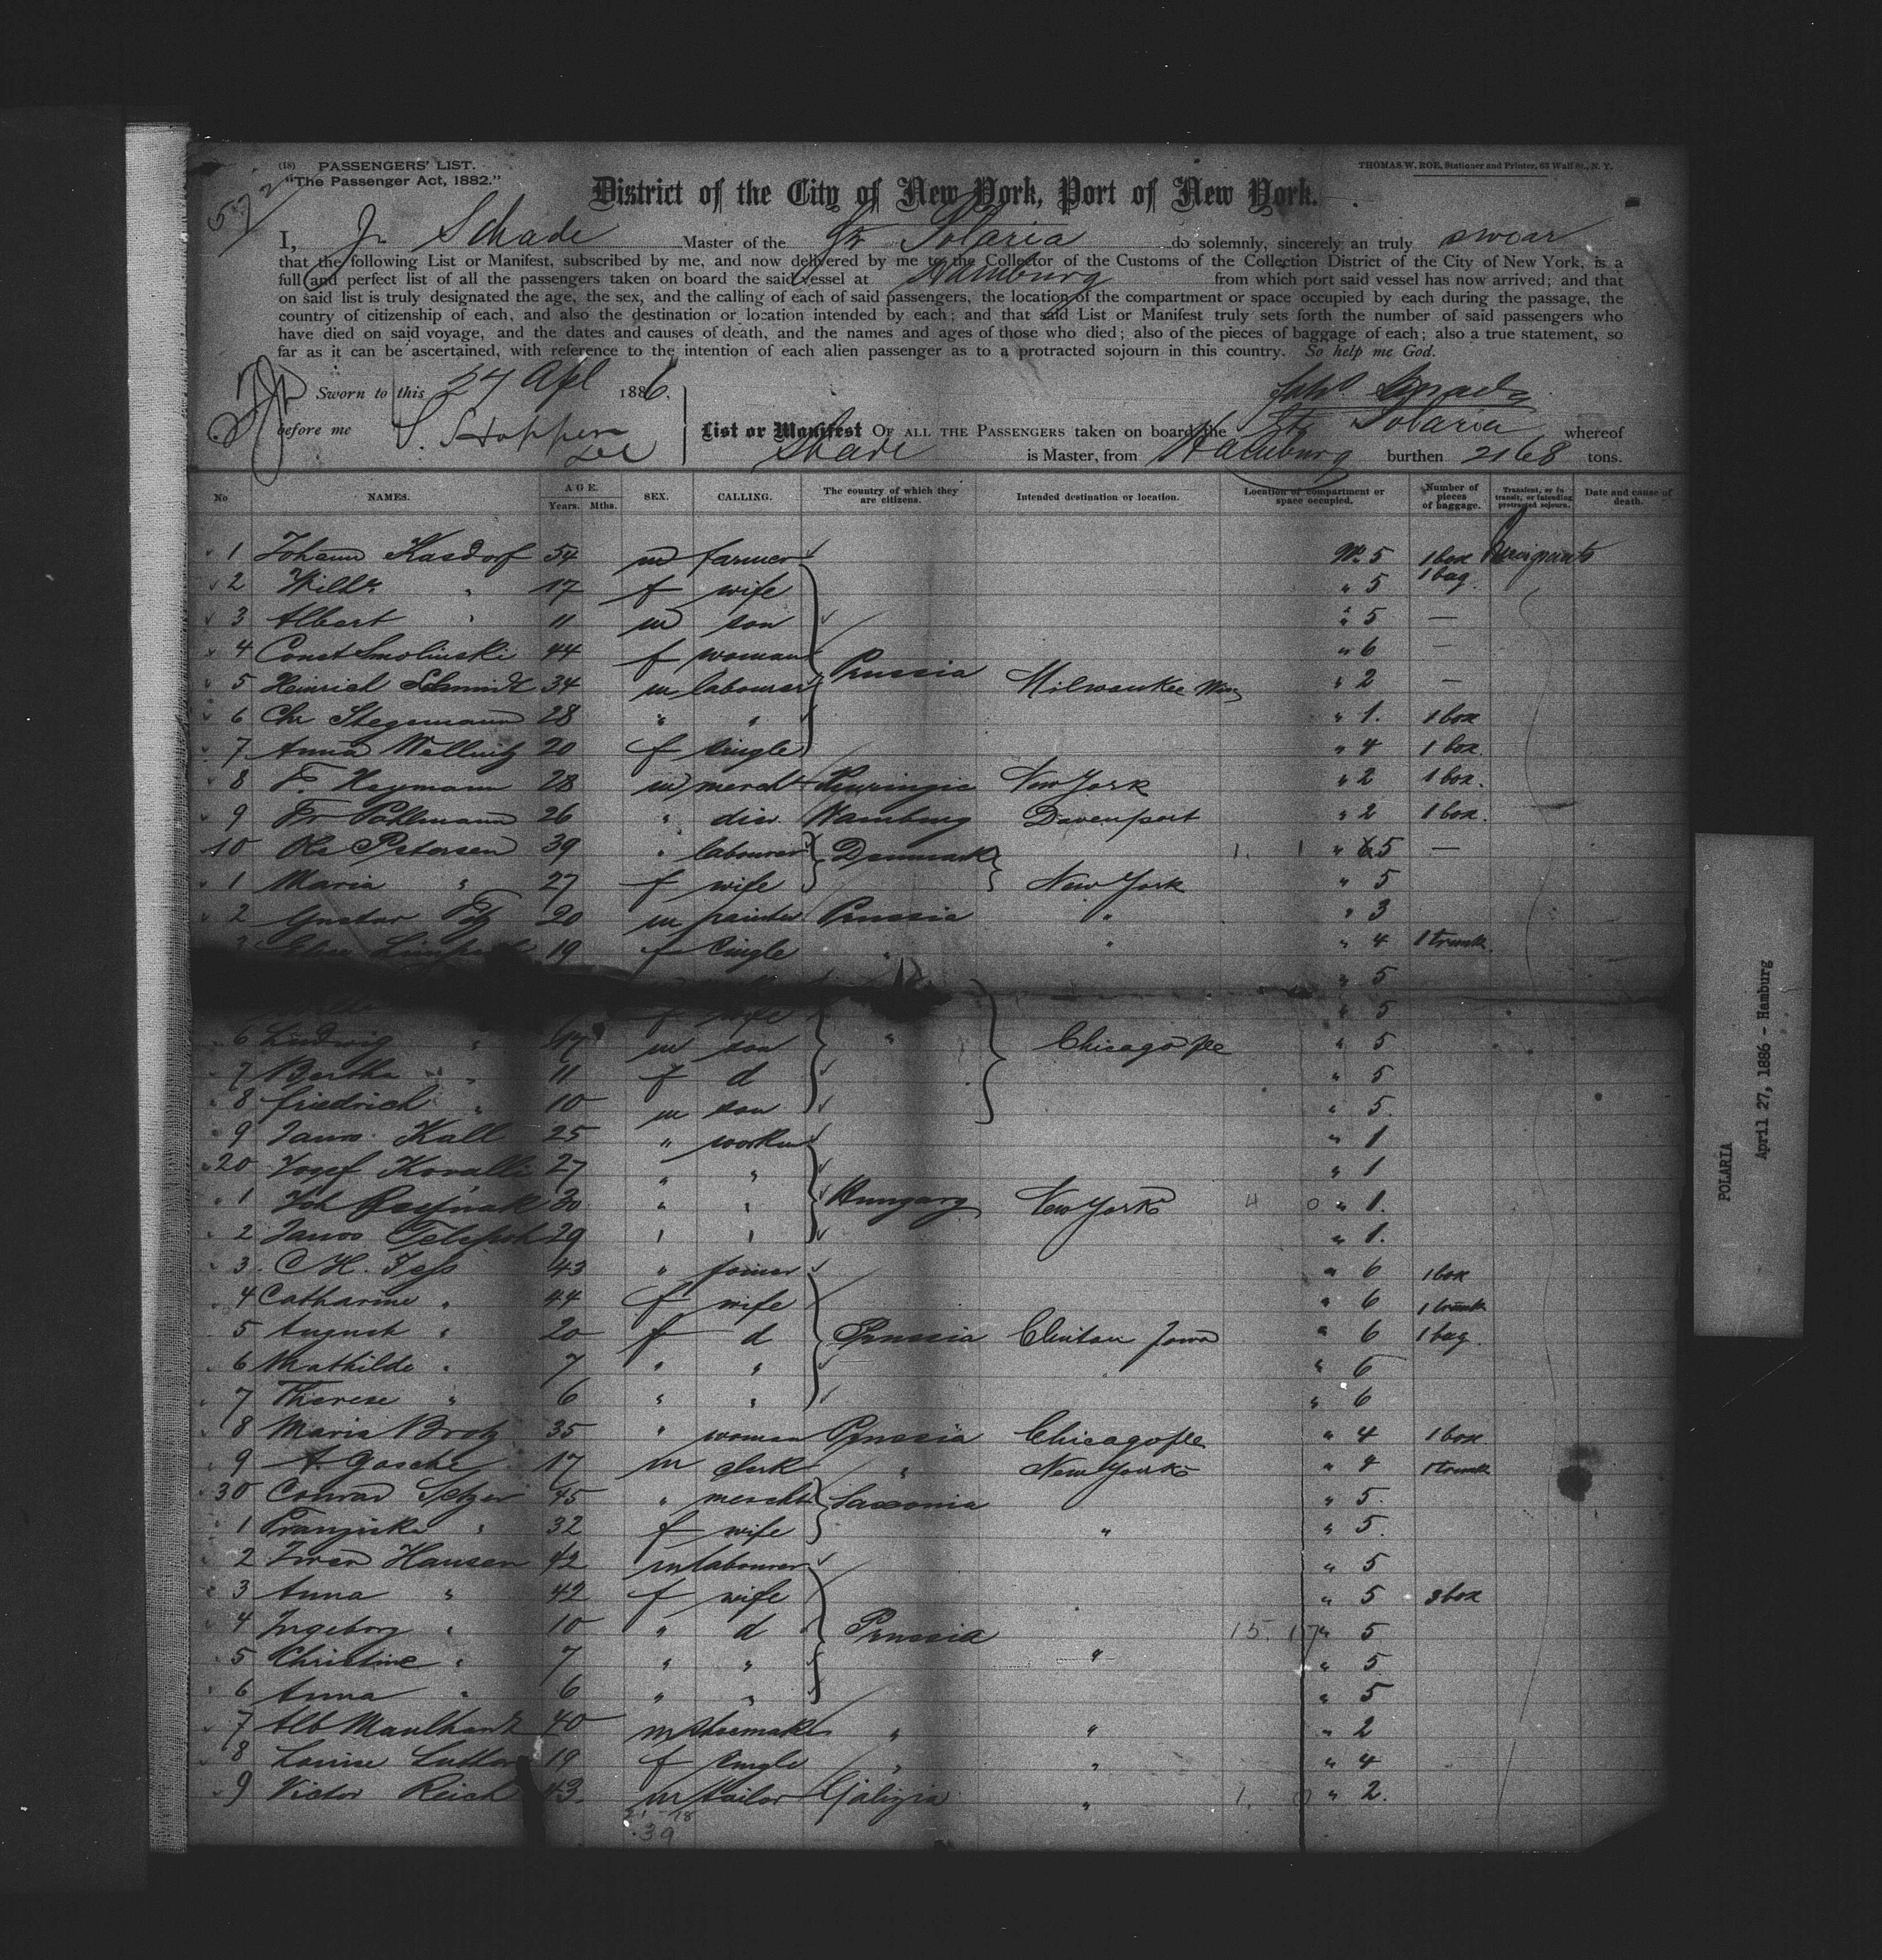 572
(18) PASSENGERS' LIST.
"The Passenger Act, 1882."
THOMAS W. ROE, Stationer and Printer, 63 Wall St., N. Y.
District of the City of New York, Port of New York.
I, Schade Master of the Polaria do solemnly, sincerely an truly swear
that the following List or Manifest, subscribed by me, and now delivered by me to the Collector of the Customs of the Collection District of the City of New York, is a
full and perfect list of all the passengers taken on board the said vessel at Hamburg from which port said vessel has now arrived; and that
on said list is truly designated the age, the sex, and the calling of each of said passengers, the location of the compartment or space occupied by each during the passage, the
country of citizenship of each, and also the destination or location intended by each; and that said List or Manifest truly sets forth the number of said passengers who
have died on said voyage, and the dates and causes of death, and the names and ages of those who died; also of the pieces of baggage of each; also a true statement, so
far as it can be ascertained, with reference to the intention of each alien passenger as to a protracted sojourn in this country. So help me God.
Sworn to this 27 Apl 1886,
before me
List or Manifest OF ALL THE PASSENGERS taken on board the Str Polaria whereof
Schade is Master, from Hamburg burthen 2168 tons.
No NAMES. AGE. Years. Mths. SEX. CALLING. The country of which they are citizens. Intended destination or location. Location of compartment or space occupied. Number of pieces of baggage. Transient, or in transit, or intending protracted sojourn. Date and cause of death.
1 Johann Kasdorf 54 m farmer No 5 1 box
2 " 17 f wife " 5 1 bag.
3 Albert " 11 m son " 5 —
4 Const Smolinski 44 f woman Prussia " 6 —
5 Heinrich Schmidt 34 m labourer Milwaukee " 2 —
6 Chr Stegemann 28 " " " 1. 1 box
7 Anna Wallnitz 20 f single " 4 1 box.
8 F. Hagemann 28 m mercht New York " 2 1 box.
9 Fr Pohlmann 26 " Hamburg Davenport " 2 1 box.
10 Petersen 39 " labourer Denmark 1. 1 " 5 —
1 Maria " 27 f wife New York " 5
2 Gustav 20 m painter Prussia " " 3
19 f single " " " 4 1 trunk.
" 5
f wife " 5
6 Ludwig " m son " Chicago " 5
7 Bertha " 11 f d " 5
8 Friedrich " 10 m son " 5.
9 Janos Kall 25 " worker " 1
20 27 " " " 1
1 Joh 30 " " Hungary New York 4 0 " 1.
2 Janos 29 " " " 1.
3. C. H. 43 " " 6 1 box
4 Catharine " 44 f wife " 6 1 trunk
5 August " 20 f d Prussia Clinton Iowa " 6 1 bag.
6 Mathilde " 7 " " " 6
7 Therese " 6 " " " 6
8 Maria 35 " woman Prussia Chicago " 4 1 box.
9 A. Gasche 17 m clerk " New York " 4 1 trunk
30 Conrad 45 " mercht Saxonia " 5.
1 Franziska " 32 f wife " " 5.
2 Hansen 42 m labourer " 5
3 Anna " 42 f wife " 5 3 box
4 Ingeborg " 10 " d Prussia 15. 17 " 5
5 Christine " 7 " " " " 5
6 Anna " 6 " " " 5
7 Alb 40 m shoemaker " " " 2
8 Louise 19 f single " " " 4
9 Victor Reich 43. m tailor Galizia " 1. 0 " 2.
21 - 18
39
POLARIA
April 27, 1886 - Hamburg